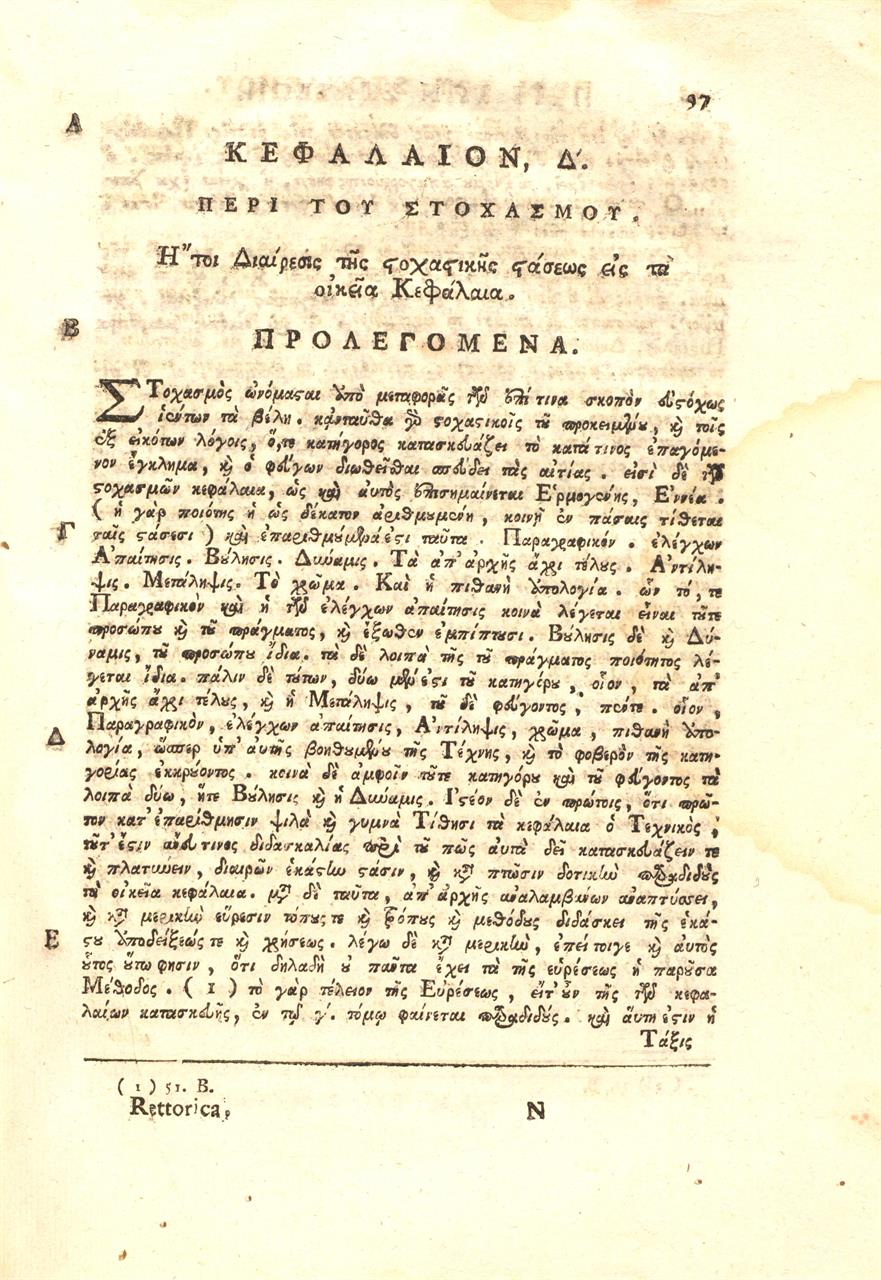 97
Α
ΚΕΦΑΛΑΙΟΝ, Δ'.
ΠΕΡΙ ΤΟΥ ΣΤΟΧΑΣΜΟΥ.
Ἤτοι Διαίρεσις τῆς ϛοχαϛικῆς ϛάσεως εἰς τὰ
οἰκεῖα Κεφάλαια.
Β
ΠΡΟΛΕΓΟΜΕΝΑ.
ΣΤοχασμὸς ὠνόμαϛαι ὑπὸ μεταφορᾶς τῶν ἐπί τινα σκοπὸν εὐϛόχως
ἱέντων τὰ βέλη. κἀνταῦθα γὰρ ϛοχαϛικοῖς τοῦ προκειμένου, καὶ τοῖς
ἐξ εἰκότων λόγοις, ὅ,τε κατήγορος κατασκευάζει τὸ κατά τινος ἐπαγόμε-
νον ἔγκλημα, καὶ ὁ φεύγων διωθεῖσθαι σπεύδει τὰς αἰτίας. εἰσὶ δὲ τῶν
ϛοχασμῶν κεφάλαια, ὡς καὶ αὐτὸς ἐπισημαίνεται Ἑρμογένης, Ἐννέα.
(ἡ γὰρ ποιότης ἡ ὡς δέκατον ἀριθμουμένη, κοινὴ ἐν πάσαις τίθεται
Γ
ταῖς ϛάσεσι) καὶ ἐπαριθμούμενά ἐϛι ταῦτα. Παραγραφικόν. ἐλέγχων
Ἀπαίτησις. Βούλησις. Δύναμις. Τὰ ἀπ' ἀρχῆς ἄχρι τέλους. Ἀντίλη-
ψις. Μετάληψις. Τὸ χρῶμα. Καὶ ἡ πιθανὴ ἀπολογία. ὧν τό, τε
Παραγραφικὸν καὶ ἡ τῶν ἐλέγχων ἀπαίτησις κοινὰ λέγεται εἶναι τοῦτε
προσώπου καὶ τοῦ πράγματος, καὶ ἔξωθεν ἐμπίπτουσι. Βούλησις δὲ καὶ Δύ-
ναμις, τοῦ προσώπου ἴδια. τὰ δὲ λοιπὰ τῆς τοῦ πράγματος ποιότητος λέ-
γεται ἴδια. πάλιν δὲ τούτων, δύω μέν ἐϛι τοῦ κατηγόρου, οἷον, τὰ ἀπ'
ἀρχῆς ἄχρι τέλους, καὶ ἡ Μετάληψις, τοῦ δὲ φεύγοντος, πέντε. οἷον,
Δ
Παραγραφικὸν, ἐλέγχων ἀπαίτησις, Ἀντίληψις, χρῶμα, πιθανὴ ἀπο-
λογία, ὥσπερ ὑπ' αὐτῆς βοηθουμένου τῆς Τέχνης, καὶ τὸ φοβερὸν τῆς κατη-
γορίας ἐκκρούοντος. κοινὰ δὲ ἀμφοῖν τοῦτε κατηγόρου καὶ τοῦ φεύγοντος τὰ
λοιπὰ δύω, ἥτε Βούλησις καὶ ἡ Δύναμις. Ἰϛέον δὲ ἐν πρώτοις, ὅτι πρῶ-
τον κατ' ἐπαρίθμησιν ψιλὰ καὶ γυμνὰ Τίθησι τὰ κεφάλαια ὁ Τεχνικὸς,
τοῦτ' ἔϛιν ἄνευ τινος διδασκαλίας περὶ τοῦ πῶς αὐτὰ δεῖ κατασκευάζειν τε
καὶ πλατύνειν, διαιρῶν ἑκάϛην ϛάσιν, καὶ κατὰ πτῶσιν δοτικὴν παραδιδοὺς
τὰ οἰκεῖα κεφάλαια. μετὰ δὲ ταῦτα, ἀπ' ἀρχῆς ἀναλαμβάνων ἀναπτύσσει,
Ε
καὶ κατὰ μερικὴν εὕρεσιν τόπους τε καὶ τρόπους καὶ μεθόδους διδάσκει τῆς ἑκά-
ϛου ὑποδείξεώς τε καὶ χρήσεως. λέγω δὲ κατὰ μερικὴν, ἐπείτοιγε καὶ αὐτὸς
οὗτος οὕτω φησιν, ὅτι δηλαδὴ οὐ πάντα ἔχει τὰ τῆς εὑρέσεως ἡ παροῦσα
Μέθοδος. (1) τὸ γὰρ τέλειον τῆς Εὑρέσεως, εἴτ' οὖν τῆς τῶν κεφα-
λαίων κατασκευῆς, ἐν τῷ γ'. τόμῳ φαίνεται παραδιδούς. καὶ αὕτη ἐϛιν ἡ
Τάξις
(1) 51. B.
Rettorica.
N